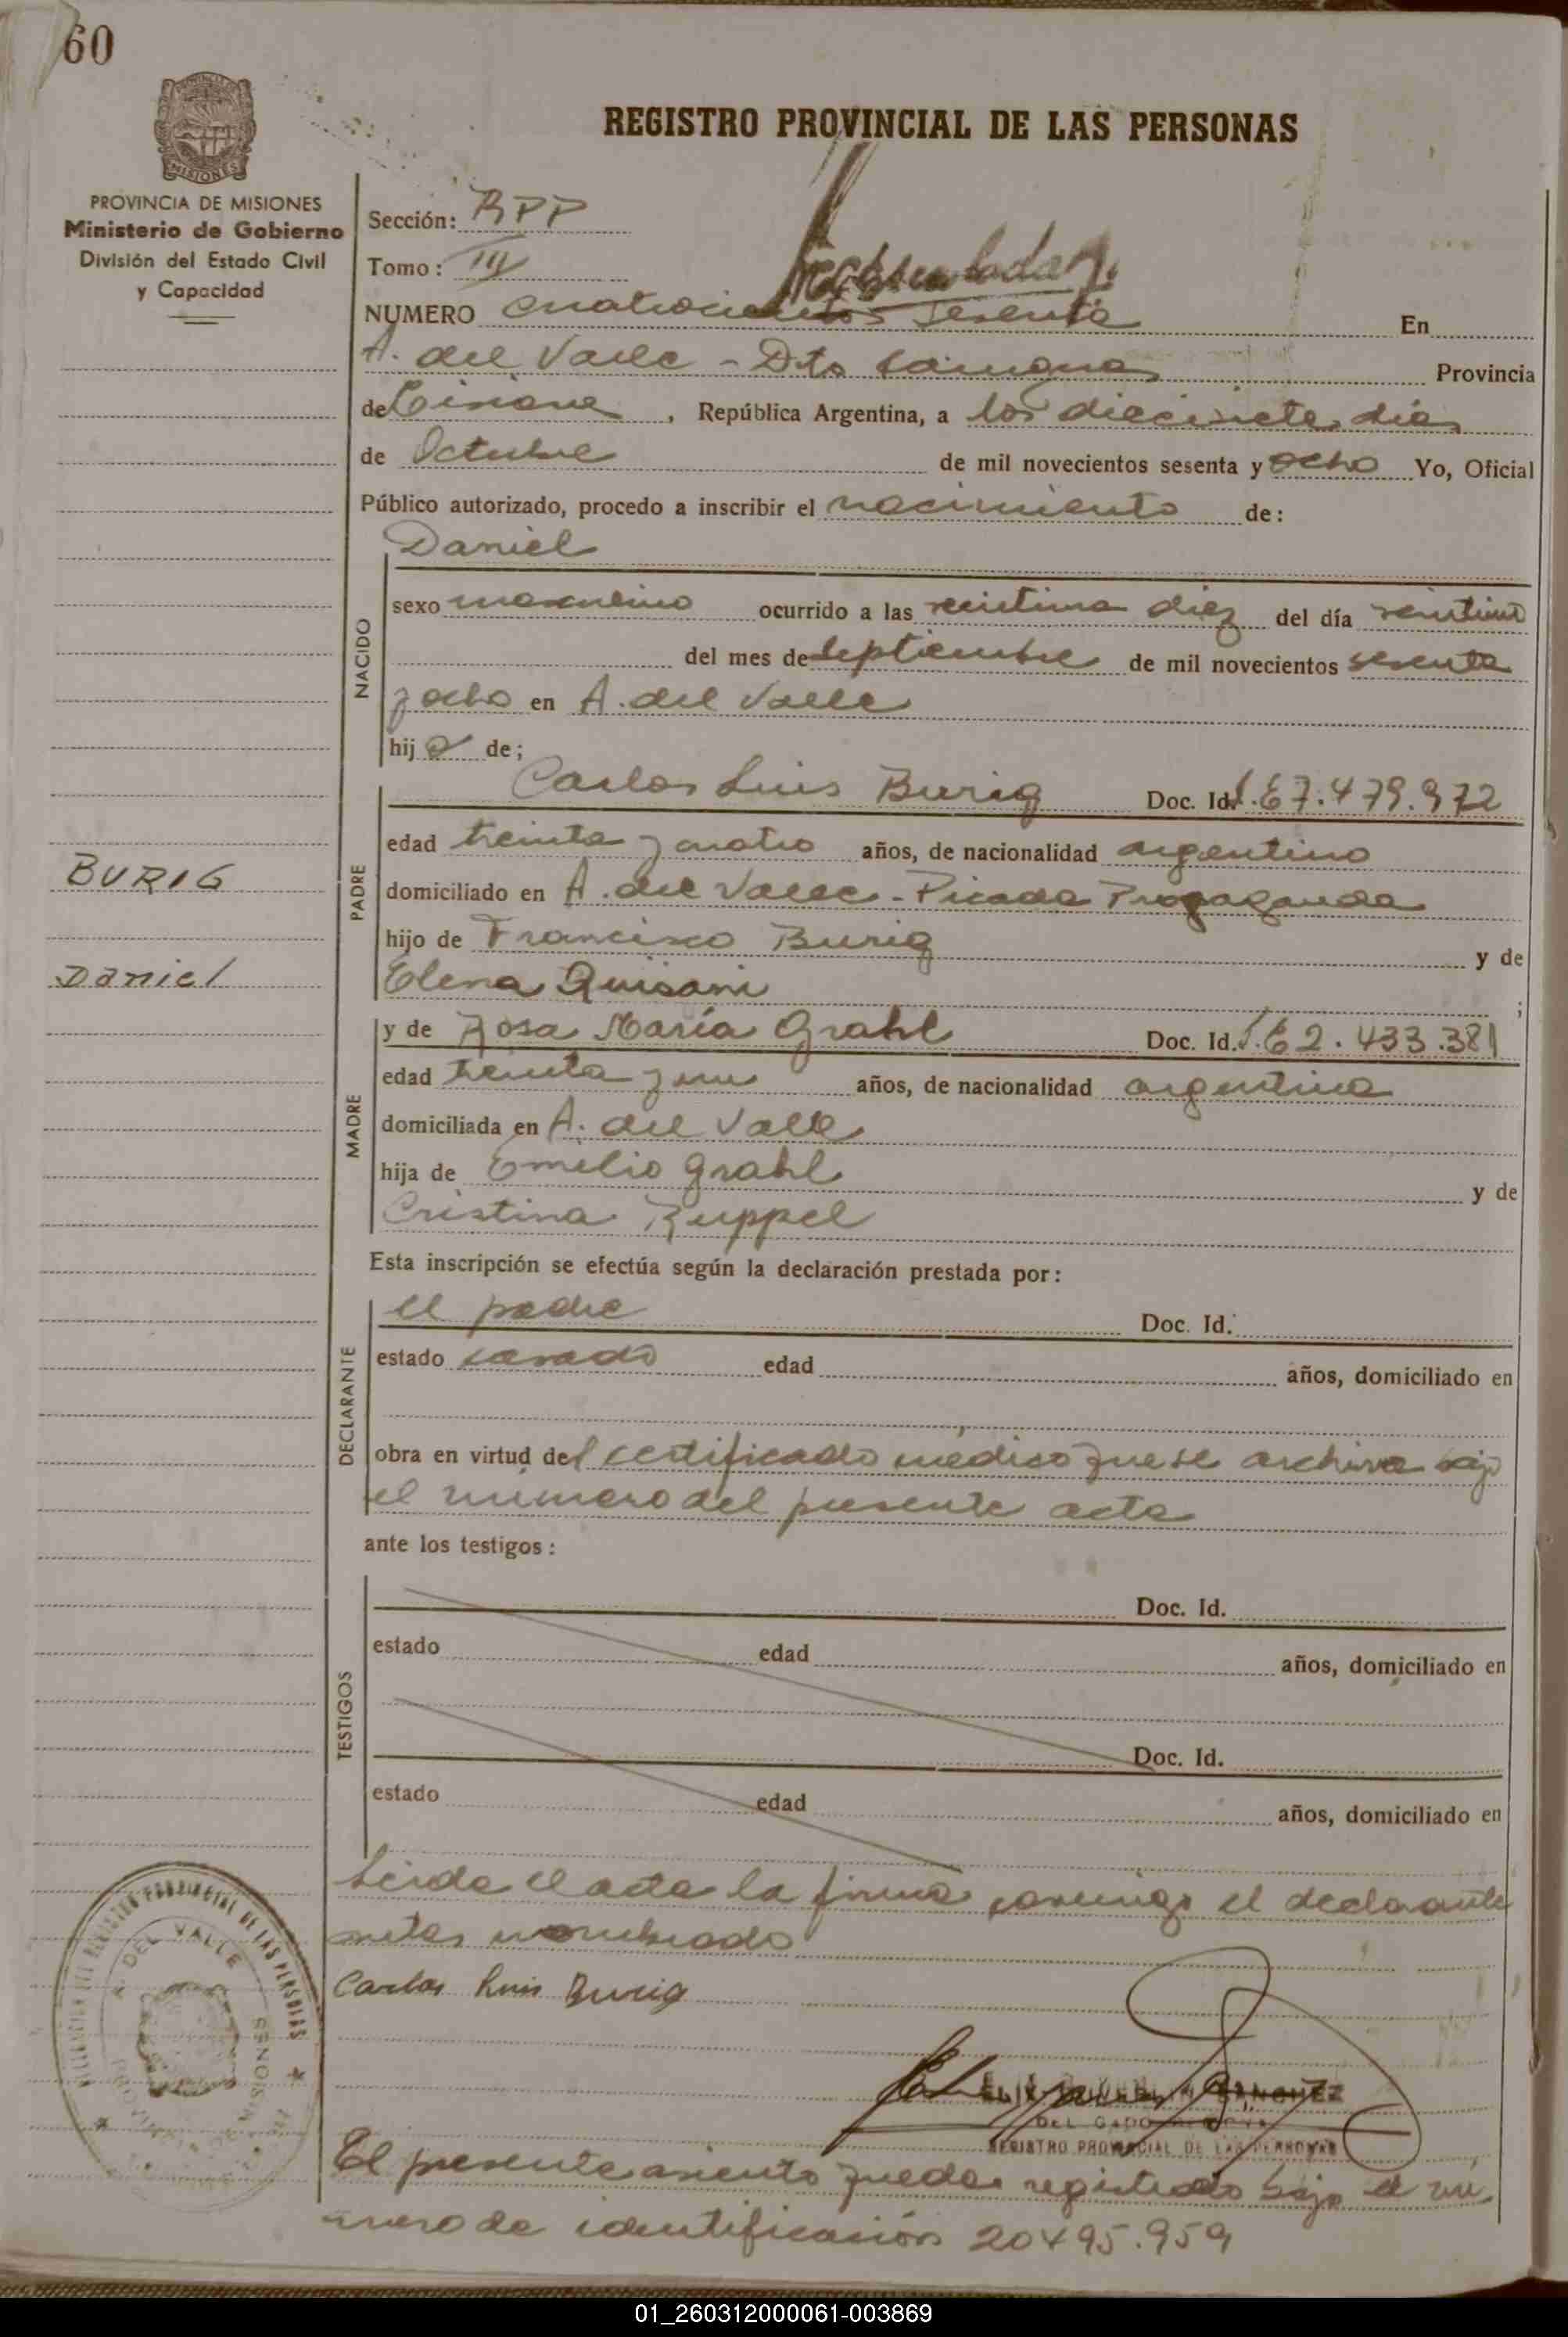 60
REGISTRO PROVINCIAL DE LAS PERSONAS
MISIONES
PROVINCIA DE MISIONES
Ministerio de Gobierno
División del Estado Civil
y Capacidad
Sección: RPP
Tomo: III
NUMERO cuatrocientos sesenta En
A. del Valle - Dto Cainguas Provincia
de Misiones, República Argentina, a los diecisiete días
de Octubre de mil novecientos sesenta y ocho Yo, Oficial
Público autorizado, procedo a inscribir el nacimiento de:
Daniel
NACIDO
sexo masculino ocurrido a las veintiuna diez del día veintiuno
del mes de septiembre de mil novecientos sesenta
y ocho en A. del Valle
hijo de;
PADRE
Carlos Luis Burig Doc. Id. 67.479.972
edad treinta y cuatro años, de nacionalidad argentino
domiciliado en A. del Valle - Picada Propaganda
hijo de Francisco Burig y de
Elena Quisani ;
BURIG
Daniel
MADRE
y de Rosa María Grahl Doc. Id. 62.433.381
edad treinta y un años, de nacionalidad argentina
domiciliada en A. del Valle
hija de Emilio Grahl y de
Cristina Ruppel
Esta inscripción se efectúa según la declaración prestada por:
DECLARANTE
el padre Doc. Id.
estado casado edad años, domiciliado en
obra en virtud del certificado médico que se archiva bajo
el número del presente acta
ante los testigos:
TESTIGOS
Doc. Id.
estado edad años, domiciliado en
Doc. Id.
estado edad años, domiciliado en
Leída el acta la firma conmigo el declarante
antes nombrado
Carlos Luis Burig
SANCHEZ
REGISTRO PROVINCIAL DE LAS PERSONAS
REGISTRO PROVINCIAL DE LAS PERSONAS
A. DEL VALLE
MISIONES
El presente asiento queda registrado bajo el nú
mero de identificación 20495.959
01_260312000061-003869